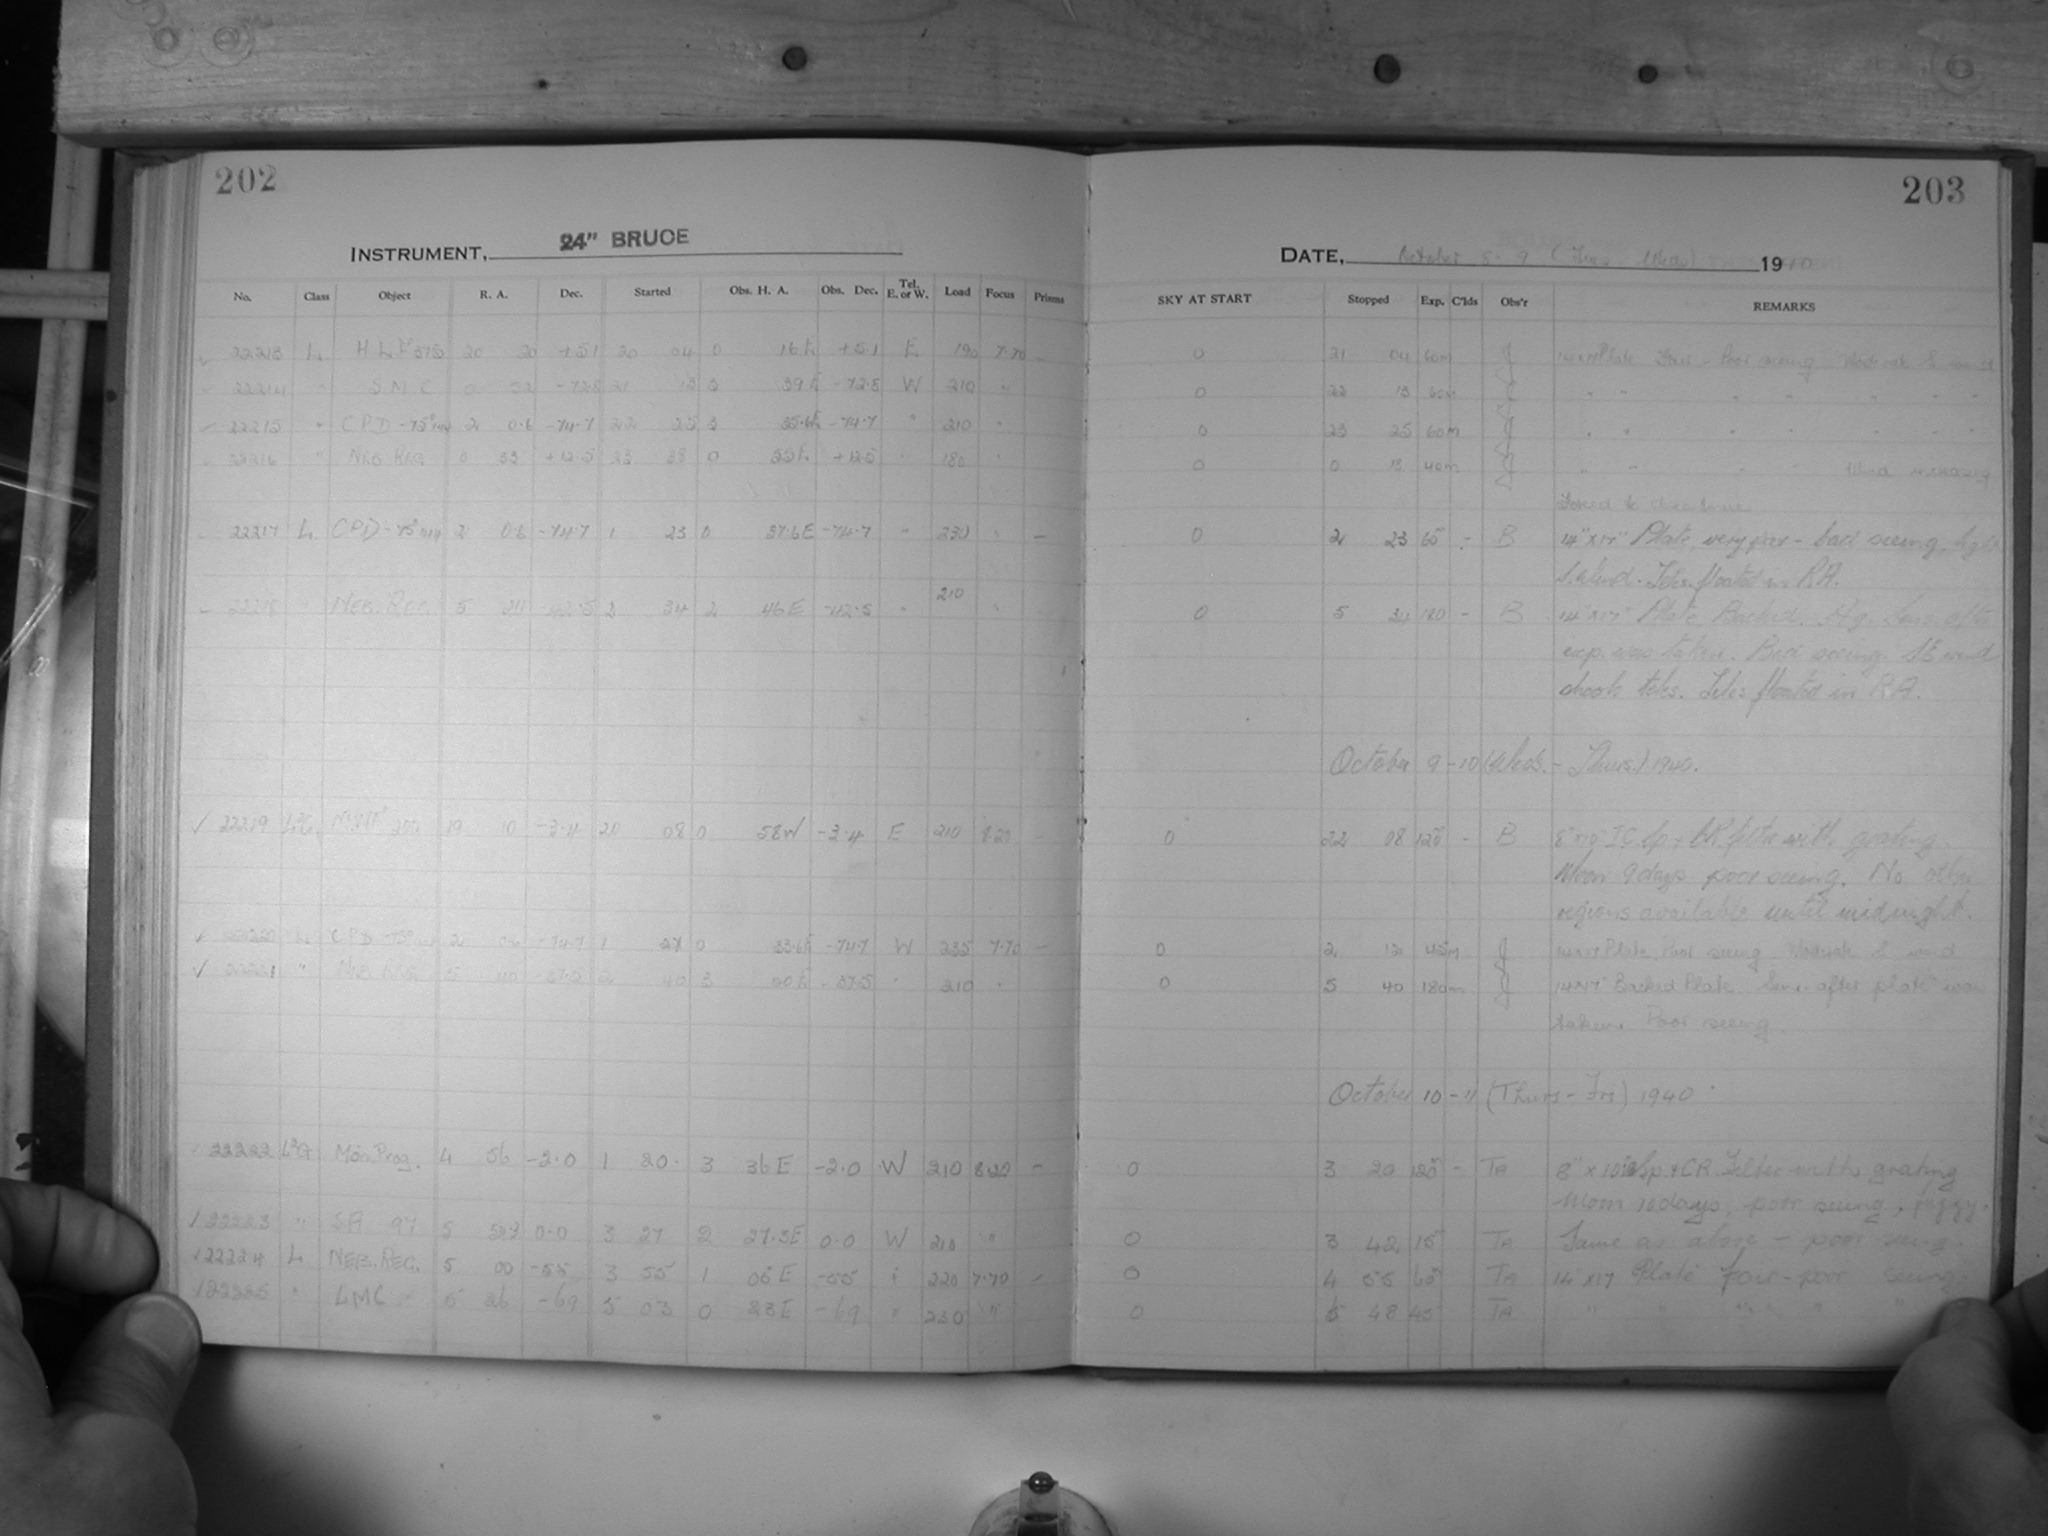 202
INSTRUMENT, 24" BRUCE
No. Class Object R. A. Dec. Started Obs. H. A. Obs. Dec. Tel. E. or W. Load Focus Prisms
22213 L 20 20 +5.1 20 04 0 16 E +5.1 E 190 7.70 -
22214 " S M C 0 52 -72.8 21 13 3 39 E -72.8 W 210 "
22215 " CPD -75° 2 0.6 -74.7 22 25 3 35.6E -74.7 " 210 "
22216 " NEB. REG. 0 53 +12.5 23 38 0 55 E +12.5 " 180 "
22217 L CPD -75° 2 0.6 -74.7 1 23 0 37.6E -74.7 " 230 " -
22218 " NEB. REG. 5 -42.5 2 34 2 46 E -42.5 " 210 "
22219 L²G 200 19 10 -3.4 20 08 0 58W -3.4 E 210 8.20 -
22220 L CPD -75° 2 -74.7 1 27 0 33.6E -74.7 W 235 7.70 -
22221 " NEB. REG. 5 40 -37.5 2 40 3 00 E -37.5 " 210 "
22222 L²G Mon. Prog. 4 56 -2.0 1 20 3 36 E -2.0 W 210 8.20 -
22223 " SA 97 5 0.0 3 27 2 27.3E 0.0 W 210 "
22224 L NEB. REG. 5 00 -55 3 55 1 05 E -55 " 220 7.70 -
22225 " LMC 5 26 -69 5 03 0 23E -69 " 230 "
203
DATE, October 8-9 (Tues. - Weds) 1940
SKY AT START Stopped Exp. C'lds Obs'r REMARKS
0 21 04 60m J 14x17 Plate Fair - Poor seeing Moderate S wind
0 22 13 60m J " " " " " " "
0 23 25 60m J " " " " " " "
0 0 18 40m J " " " " Wind increasing
Forced to close
0 2 23 60 - B 14"x17" Plate, very poor - bad seeing.
S. Wind. Teles. floated in R.A.
0 5 34 180 - B 14"x17" Plate Backed. Hg. Sens. after
exp. was taken. Bad seeing. SE wind
shook teles. Teles floated in RA.
October 9-10 (Weds. - Thurs.) 1940.
0 22 08 120 - B 8"x10" I C Sp + CR filter with grating.
Moon 9 days poor seeing. No other
regions available until midnight.
0 2 12 45m J 14x17 Plate Poor seeing Moderate S wind
0 5 40 180m J 14x17 Backed Plate Sens. after plate was
taken. Poor seeing.
October 10-11 (Thurs - Fri) 1940
0 3 20 120 - TA 8" x 10" Sp + CR Filter with grating
Moon 10 days, poor seeing, foggy.
0 3 42 15 TA Same as above - poor seeing.
0 4 55 60 TA 14" x 17 Plate fair-poor seeing
0 5 48 45 TA " " " " " "